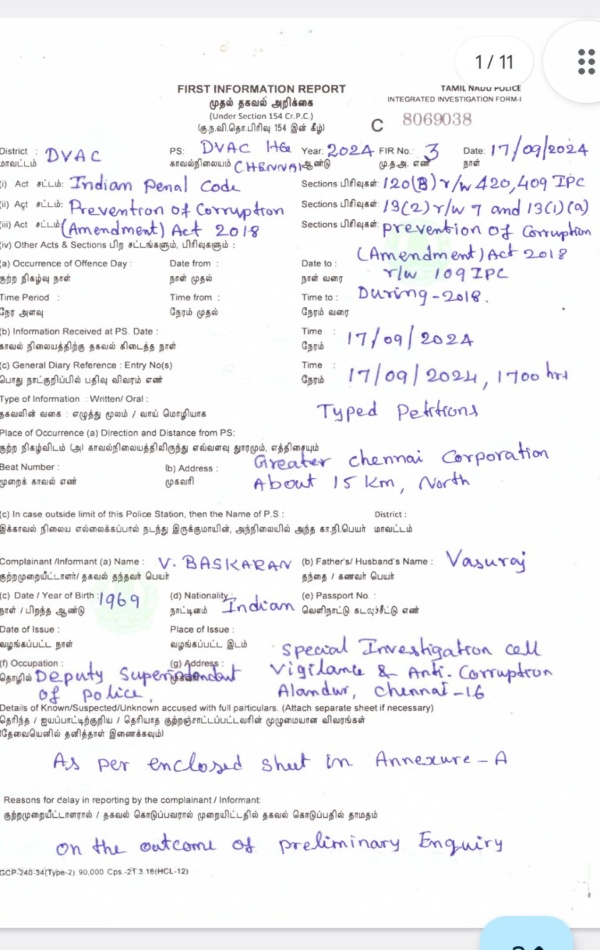 1 / 11
FIRST INFORMATION REPORT
TAMIL NADU POLICE
முதல் தகவல் அறிக்கை
INTEGRATED INVESTIGATION FORM-I
(Under Section 154 Cr.P.C.)
(கு.ந.வி.தொ.பிரிவு 154 இன் கீழ்)
C 8069038
District : DVAC PS: DVAC HQ Year: 2024 FIR No.: 3 Date: 17/09/2024
மாவட்டம் காவல்நிலையம் CHENNAI ஆண்டு மு.த.அ. எண் நாள்
(i) Act சட்டம்: Indian Penal Code Sections பிரிவுகள்: 120(B) r/w 420, 409 IPC
(ii) Act சட்டம்: Prevention of Corruption Sections பிரிவுகள்: 13(2) r/w 7 and 13(1)(a)
(iii) Act சட்டம்: (Amendment) Act 2018 Sections பிரிவுகள்: prevention of Corruption
(iv) Other Acts & Sections பிற சட்டங்களும், பிரிவுகளும் : (Amendment) Act 2018
(a) Occurrence of Offence Day : Date from : Date to : r/w 109 IPC
குற்ற நிகழ்வு நாள் நாள் முதல் நாள் வரை
Time Period : Time from : Time to : During - 2018.
நேர அளவு நேரம் முதல் நேரம் வரை
(b) Information Received at PS. Date : Time : 17/09/2024
காவல் நிலையத்திற்கு தகவல் கிடைத்த நாள் நேரம்
(c) General Diary Reference : Entry No(s) Time : 17/09/2024, 1700 hrs
பொது நாட்குறிப்பில் பதிவு விவரம் எண் நேரம்
Type of Information : Written/ Oral :
தகவலின் வகை : எழுத்து மூலம் / வாய் மொழியாக Typed Petitions
Place of Occurrence (a) Direction and Distance from PS:
குற்ற நிகழ்விடம் (அ) காவல்நிலையத்திலிருந்து எவ்வளவு தூரமும், எத்திசையும்
Beat Number : (b) Address : Greater Chennai Corporation
முறைக் காவல் எண் முகவரி About 15 Km, North
(c) In case outside limit of this Police Station, then the Name of P.S : District :
இக்காவல் நிலைய எல்லைக்கப்பால் நடந்து இருக்குமாயின், அந்நிலையில் அந்த கா.நி.பெயர் மாவட்டம்
Complainant /Informant (a) Name : V. BASKARAN (b) Father's/ Husband's Name : Vasuraj
குற்றமுறையீட்டாளர்/ தகவல் தந்தவர் பெயர் தந்தை / கணவர் பெயர்
(c) Date / Year of Birth : 1969 (d) Nationality : Indian (e) Passport No. :
நாள் / பிறந்த ஆண்டு நாட்டினம் வெளிநாட்டு கடவுச்சீட்டு எண்
Date of Issue : Place of Issue :
வழங்கப்பட்ட நாள் வழங்கப்பட்ட இடம் Special Investigation cell
(f) Occupation : (g) Address : Vigilance & Anti-Corruption
தொழில் Deputy Superintendent of police, Alandur, Chennai-16
Details of Known/Suspected/Unknown accused with full particulars. (Attach separate sheet if necessary)
தெரிந்த / ஐயப்பாட்டிற்குரிய / தெரியாத குற்றஞ்சாட்டப்பட்டவரின் முழுமையான விவரங்கள்
(தேவையெனில் தனித்தாள் இணைக்கவும்)
As per enclosed sheet in Annexure - A
Reasons for delay in reporting by the complainant / Informant:
குற்றமுறையீட்டாளரால் / தகவல் கொடுப்பவரால் முறையிட்டதில் தகவல் கொடுப்பதில் தாமதம்
on the outcome of preliminary Enquiry
GCP-240-34(Type-2) 90,000 Cps.-27.3.16(HCL-12)